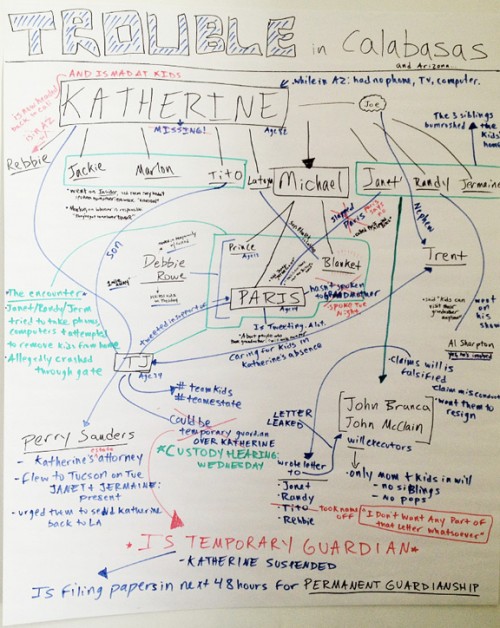 TROUBLE in Calabasas
and Arizona...
AND IS MAD AT KIDS
while in AZ: had no phone, TV, computer.
is now headed back to cali
KATHERINE
Joe
MISSING!
Age 82
is in AZ w/
The 3 siblings
bumrushed the
kids' home
Rebbie
Jackie
Marlon
Tito
Latoya
Michael
Janet
Randy
Jermaine
slapped
Paris
SON
NEPHEW
Trent
Prince
Age 15
Debbie
Rowe
Blanket
PARIS
hasn't spoken
to grandmother
SPOKE TUE
Night
Is Tweeting. A lot.
caring for kids in
Katherine's absence
tweeted in support of
The encounter
Janet/Randy/Jerm
tried to take phone,
computers + attempted
to remove kids from home
Allegedly crashed
through gate
said "Kids can
visit their
grandmother
went
on
his
show
Al Sharpton
claims will is
falsified
claim misconduct
want them to
resign
TJ
Age 34
# teamkids
# teamestate
could be
temporary guardian
OVER KATHERINE
*CUSTODY HEARING:
WEDNESDAY
LETTER
LEAKED
John Branca
John McClain
will executors
wrote letter
to
Janet
Randy
Tito
Rebbie
TOOK NAME
OFF
"I Don't Want Any Part of
that Letter whatsoever"
only mom + kids in will
- no siblings
- no pops
Perry Sanders
- Katherine's attorney
- flew to Tucson on Tue
JANET + JERMAINE
present
- urged them to send Katherine
back to LA
*IS TEMPORARY GUARDIAN*
- KATHERINE SUSPENDED
Is Filing papers in next 48 hours for PERMANENT GUARDIANSHIP